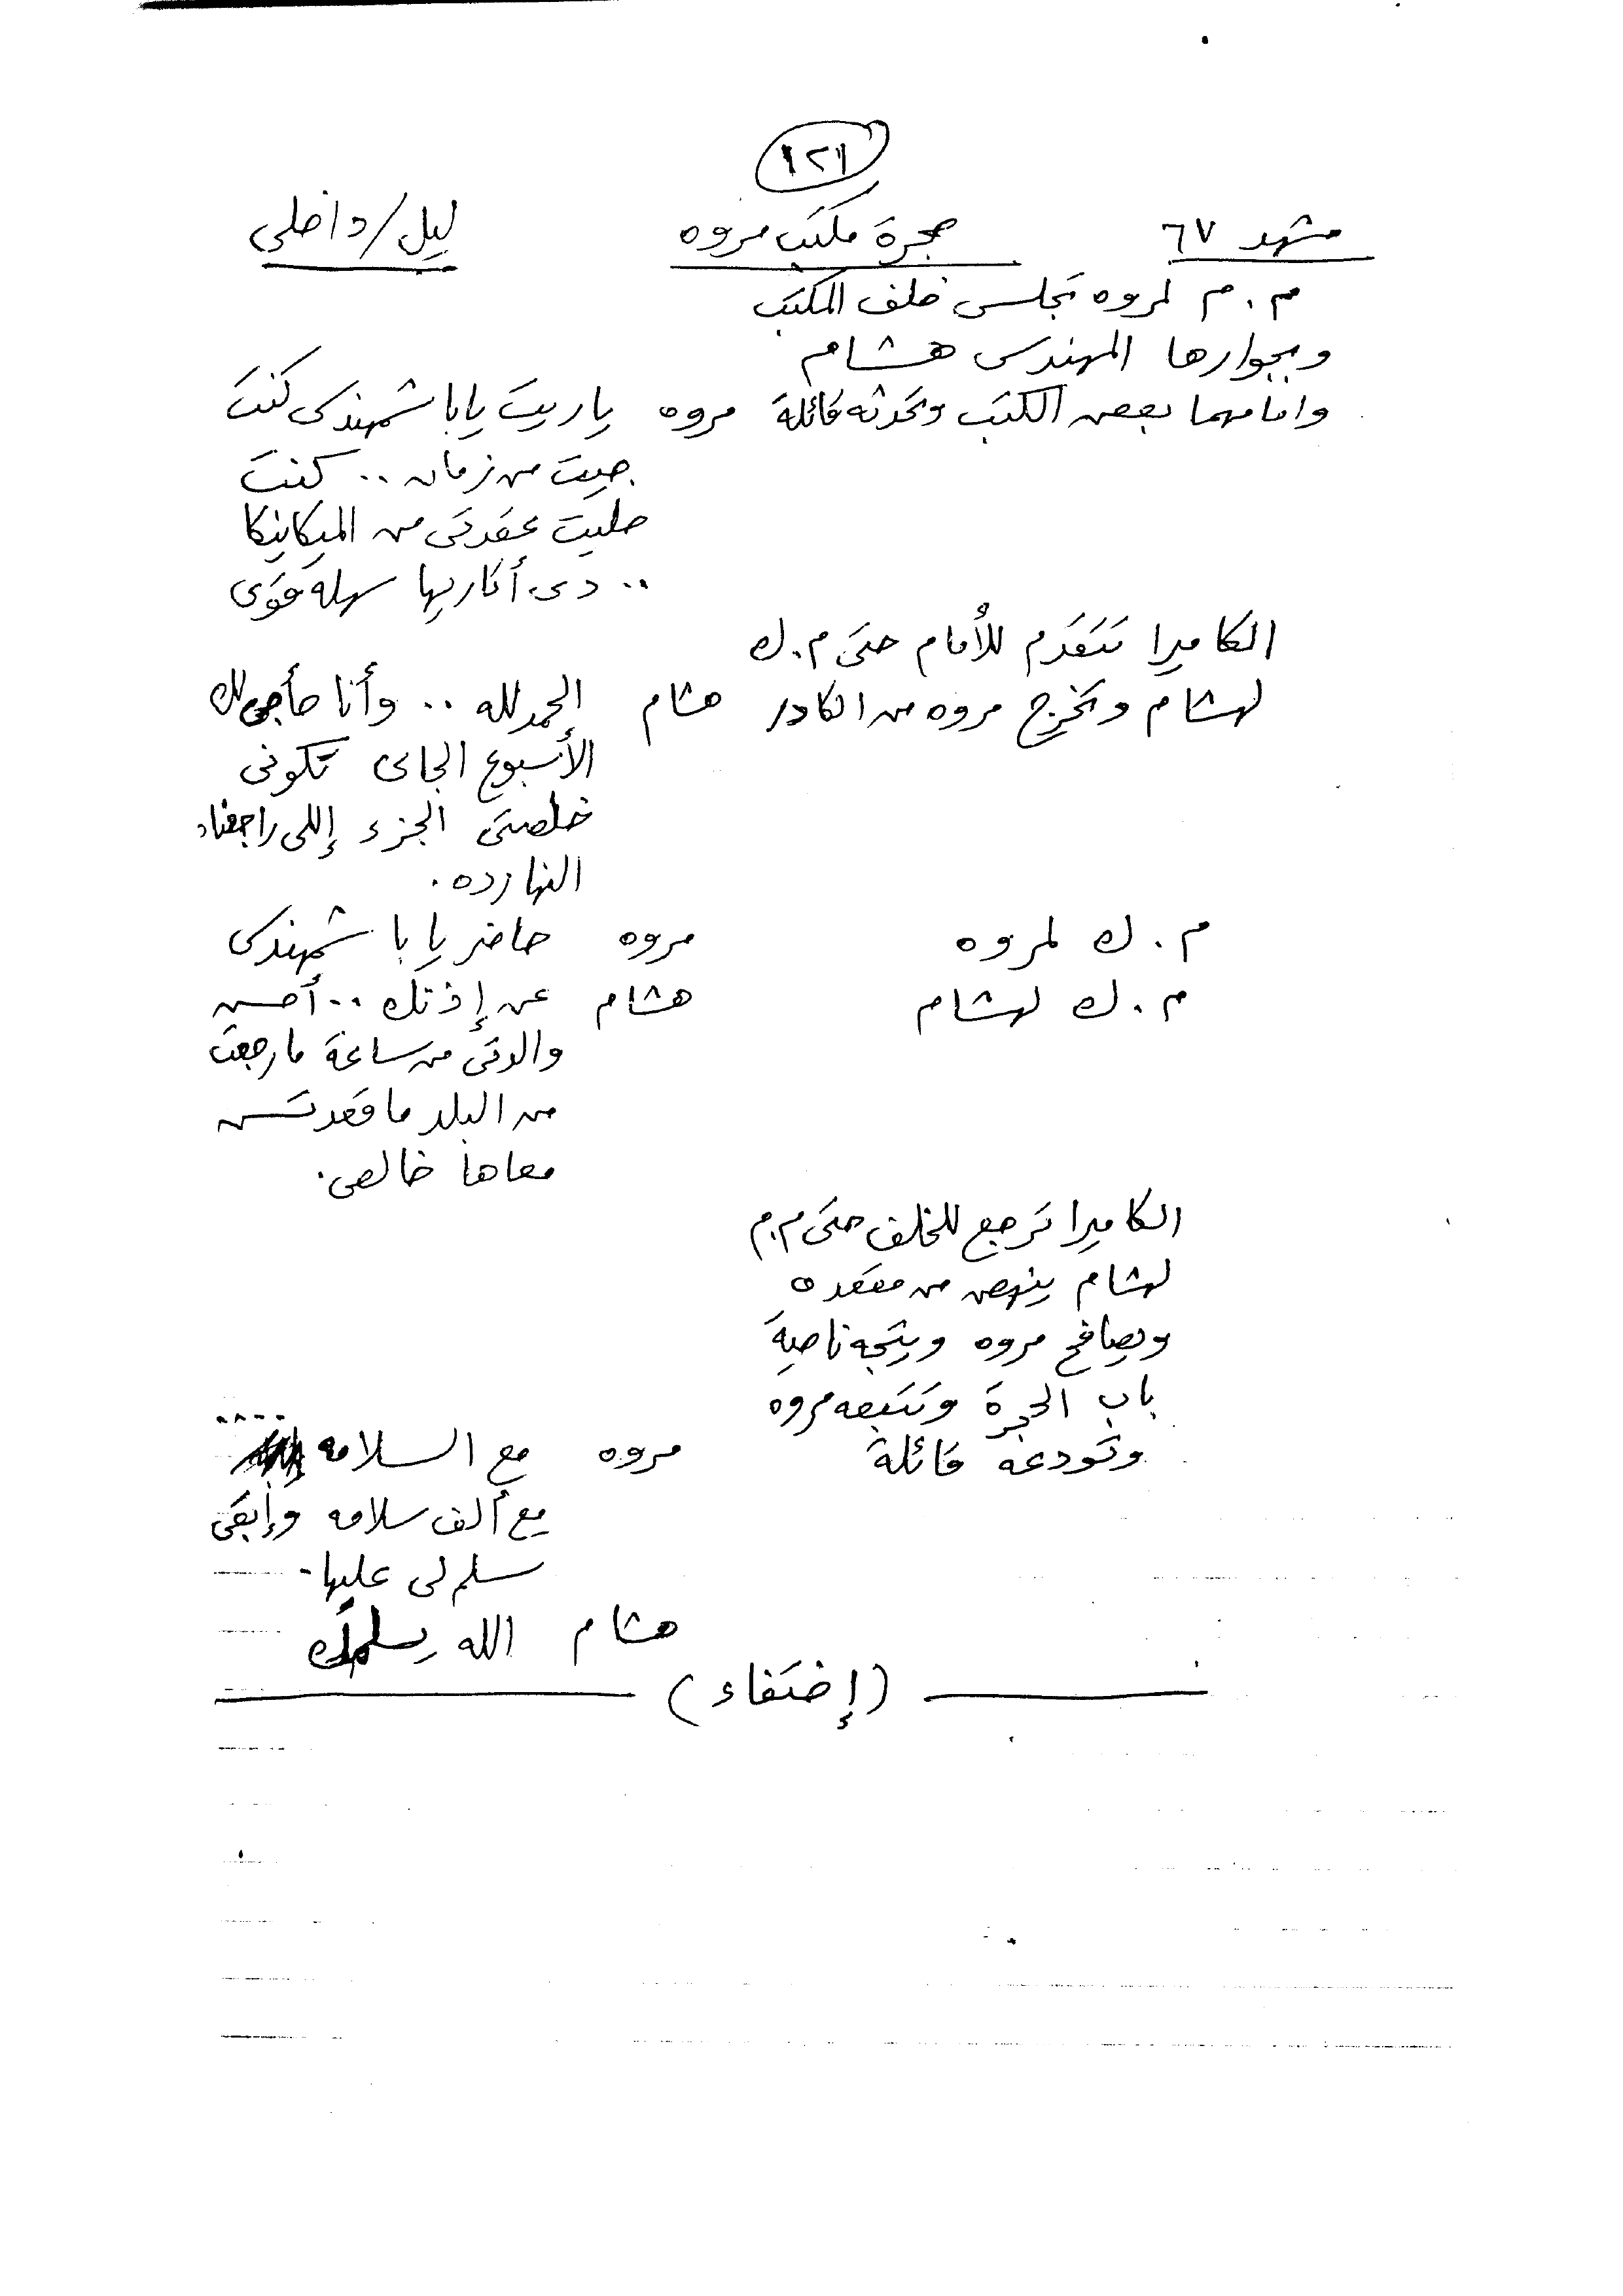 ١٢١
مشهد ٦٧ حجرة مكتب مروه ليل/داخلى
م.م لمروه تجلس خلف المكتب
وبجوارها المهندس هشام
وامامهما بعض الكتب وتحدثه قائلة مروه ياريت يابا شمهندس كنت
جيت من زمان .. كنت
حليت عقدتى من الميكانيكا
.. دى أتاريها سهله قوى
الكاميرا تتقدم للأمام حتى م.ك
لهشام وتخرج مروه من الكادر هشام الحمد لله .. وأنا حأجى لك
الأسبوع الجاى تكونى
خلصتى الجزء إللى راجعناه
النهارده.
م.ك لمروه مروه حاضر يا با شمهندس
م.ك لهشام هشام عن إذنك .. أحسن
والدتى من ساعة ما رجعت
من البلد ما قعدتش
معاها خالص.
الكاميرا ترجع للخلف حتى م.م
لهشام ينهض من مقعده
ويصافح مروه ويتجه ناحية
باب الحجرة وتتبعه مروه
وتودعه قائلة مروه مع السلامه
مع ألف سلامه وإبقى
سلم لى عليها.
هشام الله يسلمك
(إختفاء)